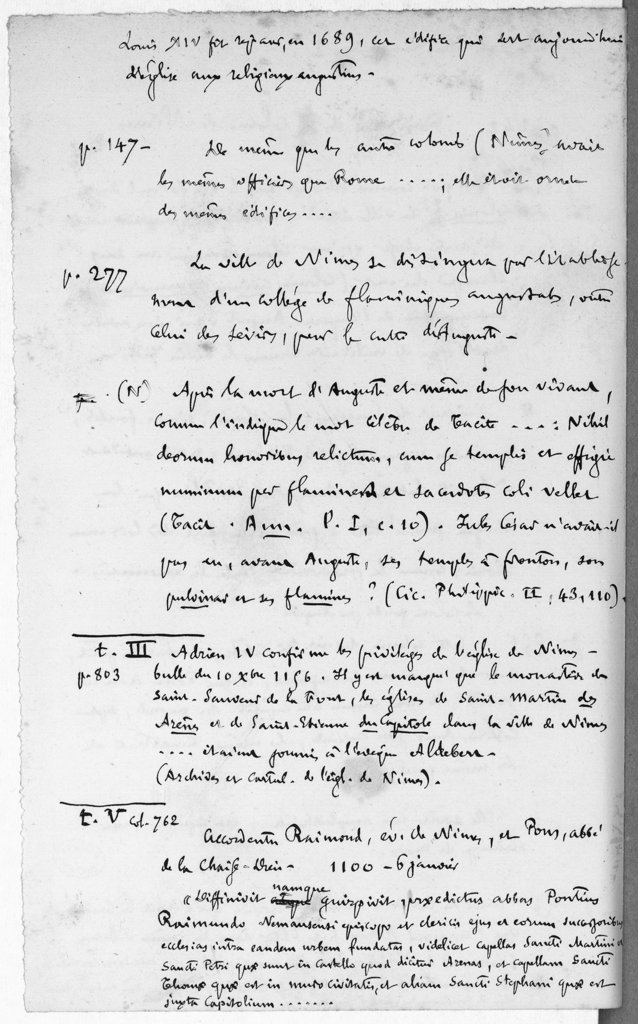 Louis XIV fit réparer, en 1689, cet édifice qui sert aujourd'hui
d'église aux religieux augustins.
p. 147 – De même que les autres colonies (Nîmes) avait
les mêmes officiers que Rome .....; elle étoit ornée
des mêmes édifices....
p. 277 La ville de Nîmes se distingua par l'établisse-
ment d'un collége de flaminiques augustales, outre
celui des sévirs, pour le culte d'Auguste –
(N) Après la mort d'Auguste et même de son vivant,
comme l'indique le mot célèbre de Tacite ....: Nihil
deorum honoribus relictum, cum se templis et effigie
numinum per flamines et sacerdotes coli vellet
(Tacit. Ann. l. I, c. 10). Jules César n'avait-il
pas eu, avant Auguste, ses temples à fronton, son
pulvinar et ses flamines ? (Cic. Philippic. II, 43, 110).
t. III Adrien IV confirme les privilèges de l'église de Nîmes –
p. 803 bulle du 10 Xbre 1156. Il y est marqué que le monastère de
Saint-Sauveur de la Font, les églises de Saint-Martin des
Arènes et de Saint-Etienne du Capitole dans la ville de Nîmes
.... étaient soumis à l'évêque Aldebert –
(Archives et Cartul. de l'égl. de Nîmes).
t. V col. 762
Accord entre Raimond, év. de Nîmes, et Pons, abbé
de la Chaise-Dieu – 1100 – 6 janvier
« Diffinivit namque guirpivit prædictus abbas Pontius
Raimundo Nemausensi episcopo et clericis ejus et eorum successoribus
ecclesias intra eandem urbem fundatas, videlicet capellas Sancti Martini et
Sancti Petri quæ sunt in castello quod dicitur Arenas, et capellam Sancti
Thomæ quæ est in muro civitatis, et aliam Sancti Stephani quæ est
juxta Capitolium .......